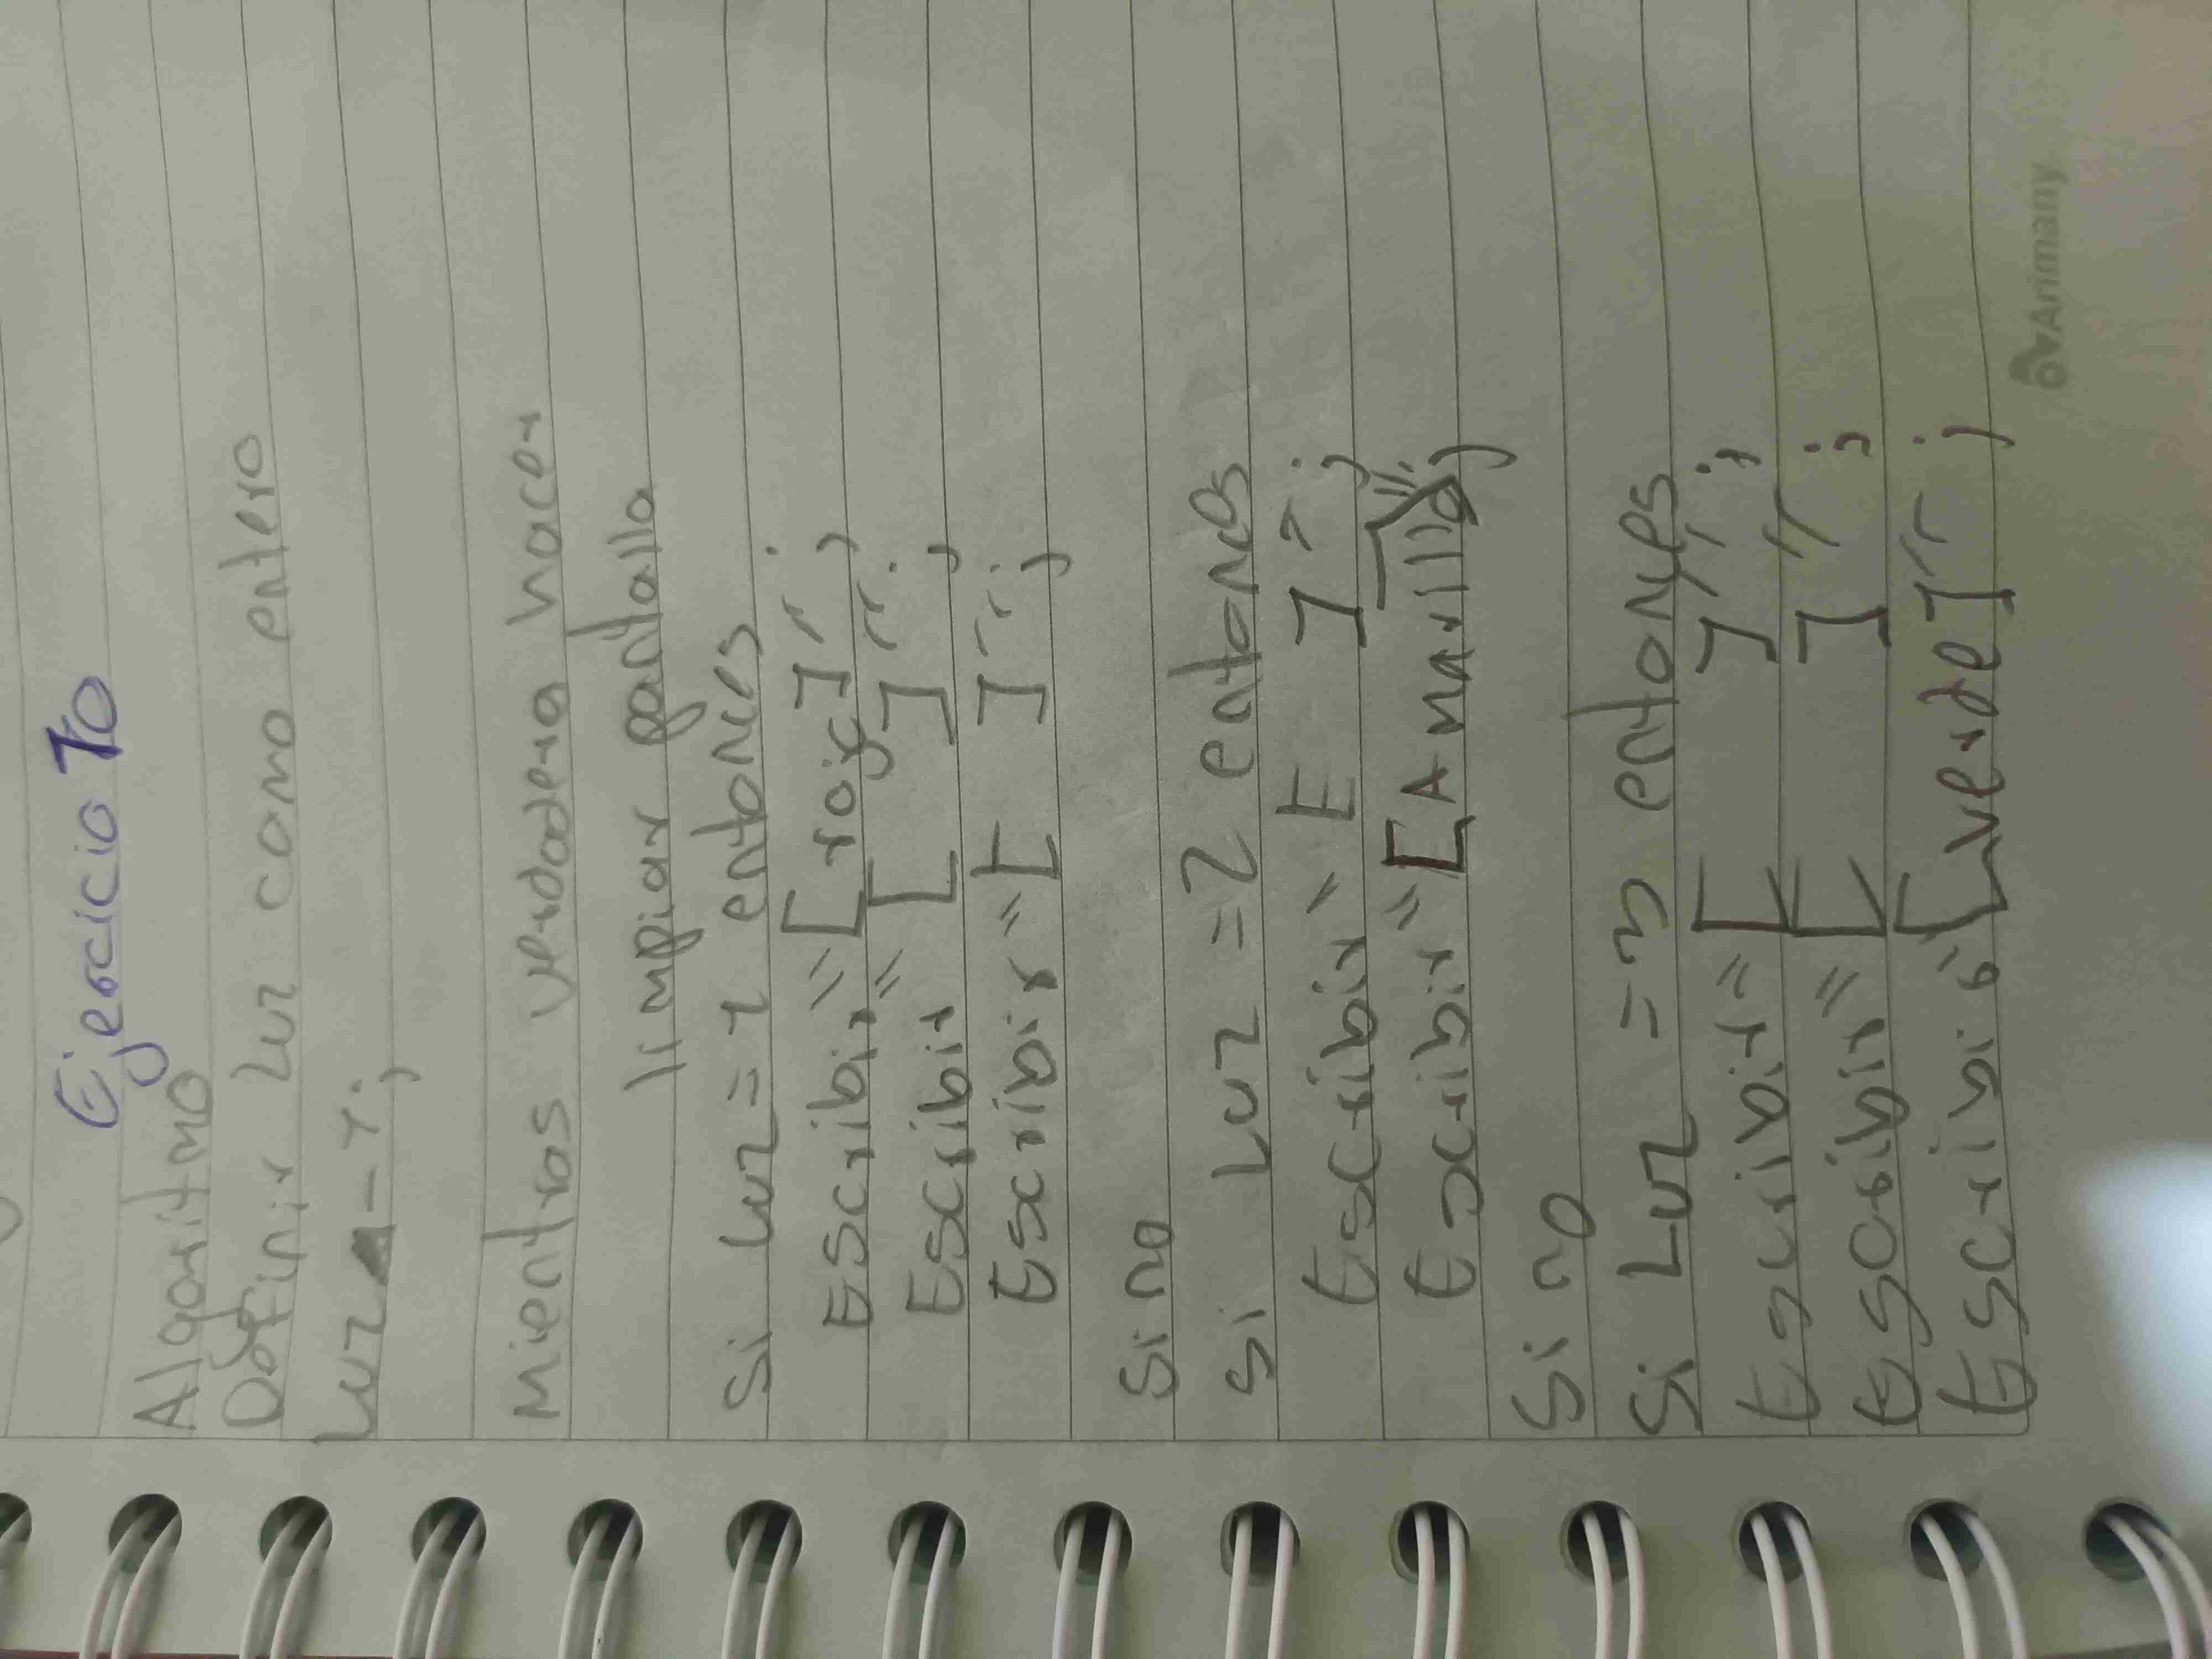 Ejercicio 10
Algoritmo
Definir Luz como entero
Luz ← 1;
Mientras verdadera hacer
limpiar pantalla
Si Luz = 1 entonces
Escribir "[rojo]";
Escribir "[ ]";
Escribir "[ ]";
Si no
Si Luz = 2 entonces
Escribir "[ ]";
Escribir "[Amarilla]";
Si no
Si Luz = 3 entonces
Escribir "[ ]";
Escribir "[ ]";
Escribir "[verde]";
Arimany